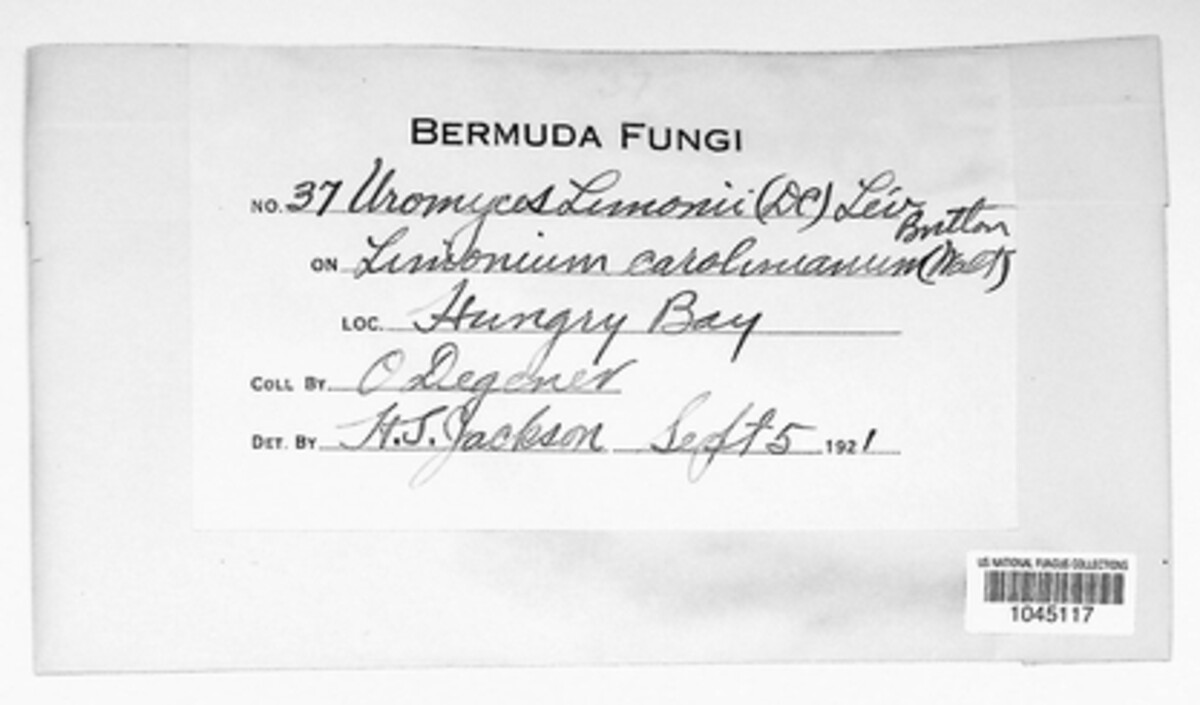 BERMUDA FUNGI
NO. 37 Uromyces Limonii (DC) Lév
ON Limonium carolinianum (Walt) Britton
LOC. Hungry Bay
COLL BY O Degener
DET. BY H.S. Jackson Sept 5 1921
US NATIONAL FUNGUS COLLECTIONS
1045117